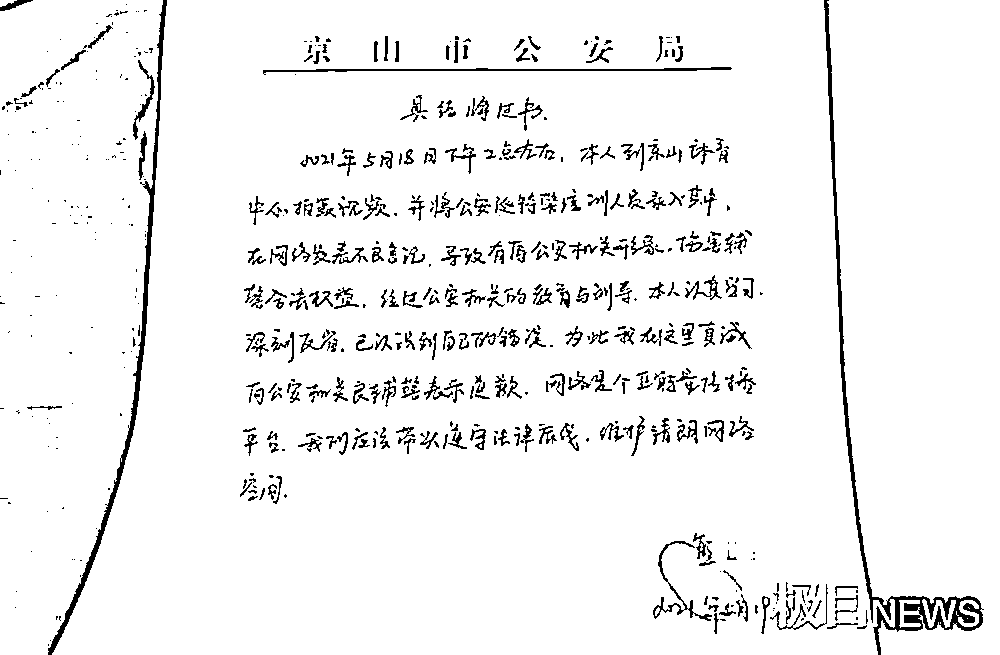 京山市公安局
具结悔过书
2021年5月18日下午2点左右，本人到京山体育
中心拍摄视频，并将公安巡特警培训人员录入其中，
在网络发表不良言论，导致有损公安机关形象，伤害辅
警合法权益，经过公安机关的教育与训导，本人认真学习，
深刻反省，已认识到自己的错误，为此我在这里真诚
向公安机关及辅警表示道歉，网络是个正能量传播
平台，我们应该带头遵守法律底线，维护清朗网络
空间。
熊
2021年5月19
极目NEWS